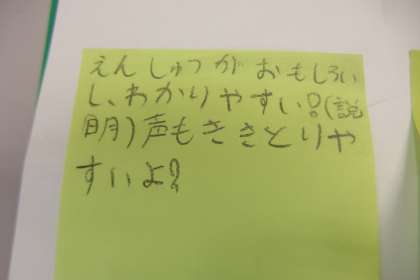 えんしゅつがおもしろい
し、わかりやすい!(説
明)声もききとりや
すいよ!